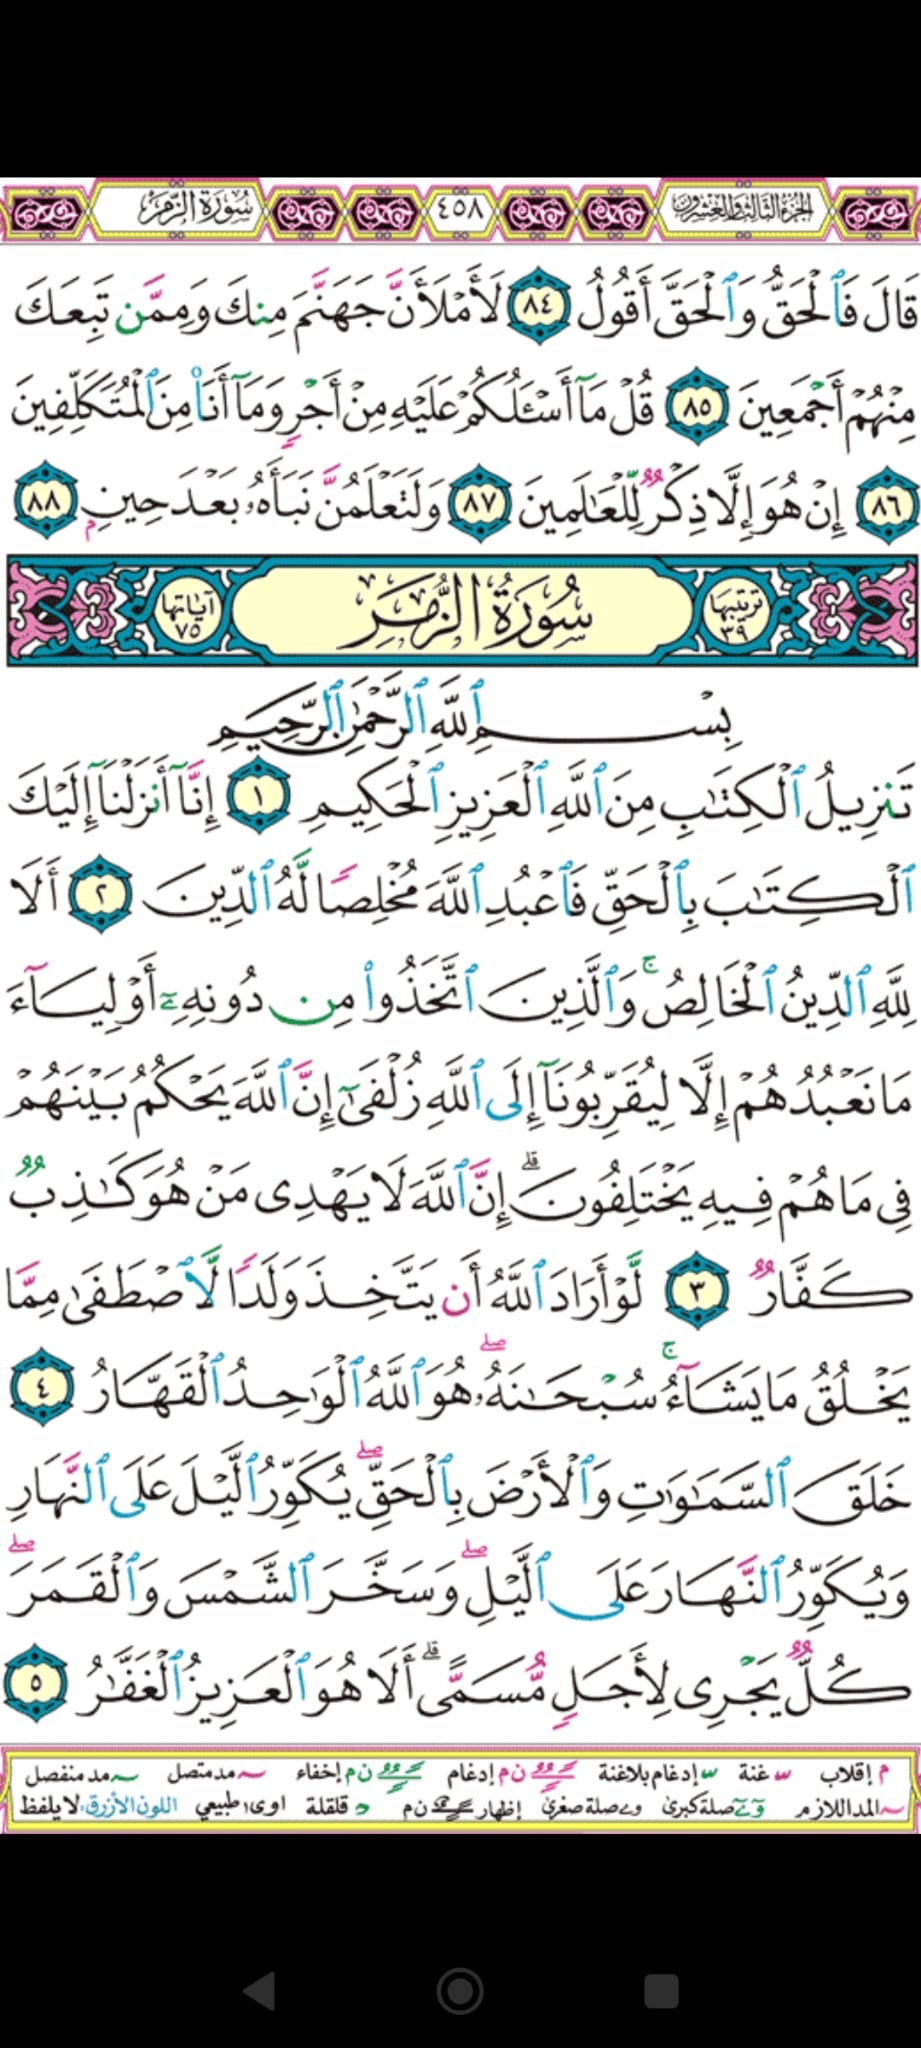 الجزء الثالث والعشرون
٤٥٨
سُورَةُ الزُّمَرِ
قَالَ فَٱلْحَقُّ وَٱلْحَقَّ أَقُولُ ٨٤ لَأَمْلَأَنَّ جَهَنَّمَ مِنكَ وَمِمَّن تَبِعَكَ
مِنْهُمْ أَجْمَعِينَ ٨٥ قُلْ مَآ أَسْـَٔلُكُمْ عَلَيْهِ مِنْ أَجْرٍ وَمَآ أَنَا۠ مِنَ ٱلْمُتَكَلِّفِينَ
٨٦ إِنْ هُوَ إِلَّا ذِكْرٌ لِّلْعَـٰلَمِينَ ٨٧ وَلَتَعْلَمُنَّ نَبَأَهُۥ بَعْدَ حِينٍۭ ٨٨
ترتيبها ٣٩
سُورَةُ الزُّمَرِ
آياتها ٧٥
بِسْمِ ٱللَّهِ ٱلرَّحْمَـٰنِ ٱلرَّحِيمِ
تَنزِيلُ ٱلْكِتَـٰبِ مِنَ ٱللَّهِ ٱلْعَزِيزِ ٱلْحَكِيمِ ١ إِنَّآ أَنزَلْنَآ إِلَيْكَ
ٱلْكِتَـٰبَ بِٱلْحَقِّ فَٱعْبُدِ ٱللَّهَ مُخْلِصًا لَّهُ ٱلدِّينَ ٢ أَلَا
لِلَّهِ ٱلدِّينُ ٱلْخَالِصُ ۚ وَٱلَّذِينَ ٱتَّخَذُوا۟ مِن دُونِهِۦٓ أَوْلِيَآءَ
مَا نَعْبُدُهُمْ إِلَّا لِيُقَرِّبُونَآ إِلَى ٱللَّهِ زُلْفَىٰٓ إِنَّ ٱللَّهَ يَحْكُمُ بَيْنَهُمْ
فِى مَا هُمْ فِيهِ يَخْتَلِفُونَ ۗ إِنَّ ٱللَّهَ لَا يَهْدِى مَنْ هُوَ كَـٰذِبٌ
كَفَّارٌ ٣ لَّوْ أَرَادَ ٱللَّهُ أَن يَتَّخِذَ وَلَدًا لَّٱصْطَفَىٰ مِمَّا
يَخْلُقُ مَا يَشَآءُ ۚ سُبْحَـٰنَهُۥ ۖ هُوَ ٱللَّهُ ٱلْوَٰحِدُ ٱلْقَهَّارُ ٤
خَلَقَ ٱلسَّمَـٰوَٰتِ وَٱلْأَرْضَ بِٱلْحَقِّ ۖ يُكَوِّرُ ٱلَّيْلَ عَلَى ٱلنَّهَارِ
وَيُكَوِّرُ ٱلنَّهَارَ عَلَى ٱلَّيْلِ ۖ وَسَخَّرَ ٱلشَّمْسَ وَٱلْقَمَرَ ۖ
كُلٌّ يَجْرِى لِأَجَلٍ مُّسَمًّى ۗ أَلَا هُوَ ٱلْعَزِيزُ ٱلْغَفَّـٰرُ ٥
م إقلاب غنة إدغام بلاغنة ن م إدغام ن م إخفاء مد متصل مد منفصل
المد اللازم صلة كبرى صلة صغرى إظهار ن م قلقلة اوى طبيعي اللون الأزرق: لا يلفظ